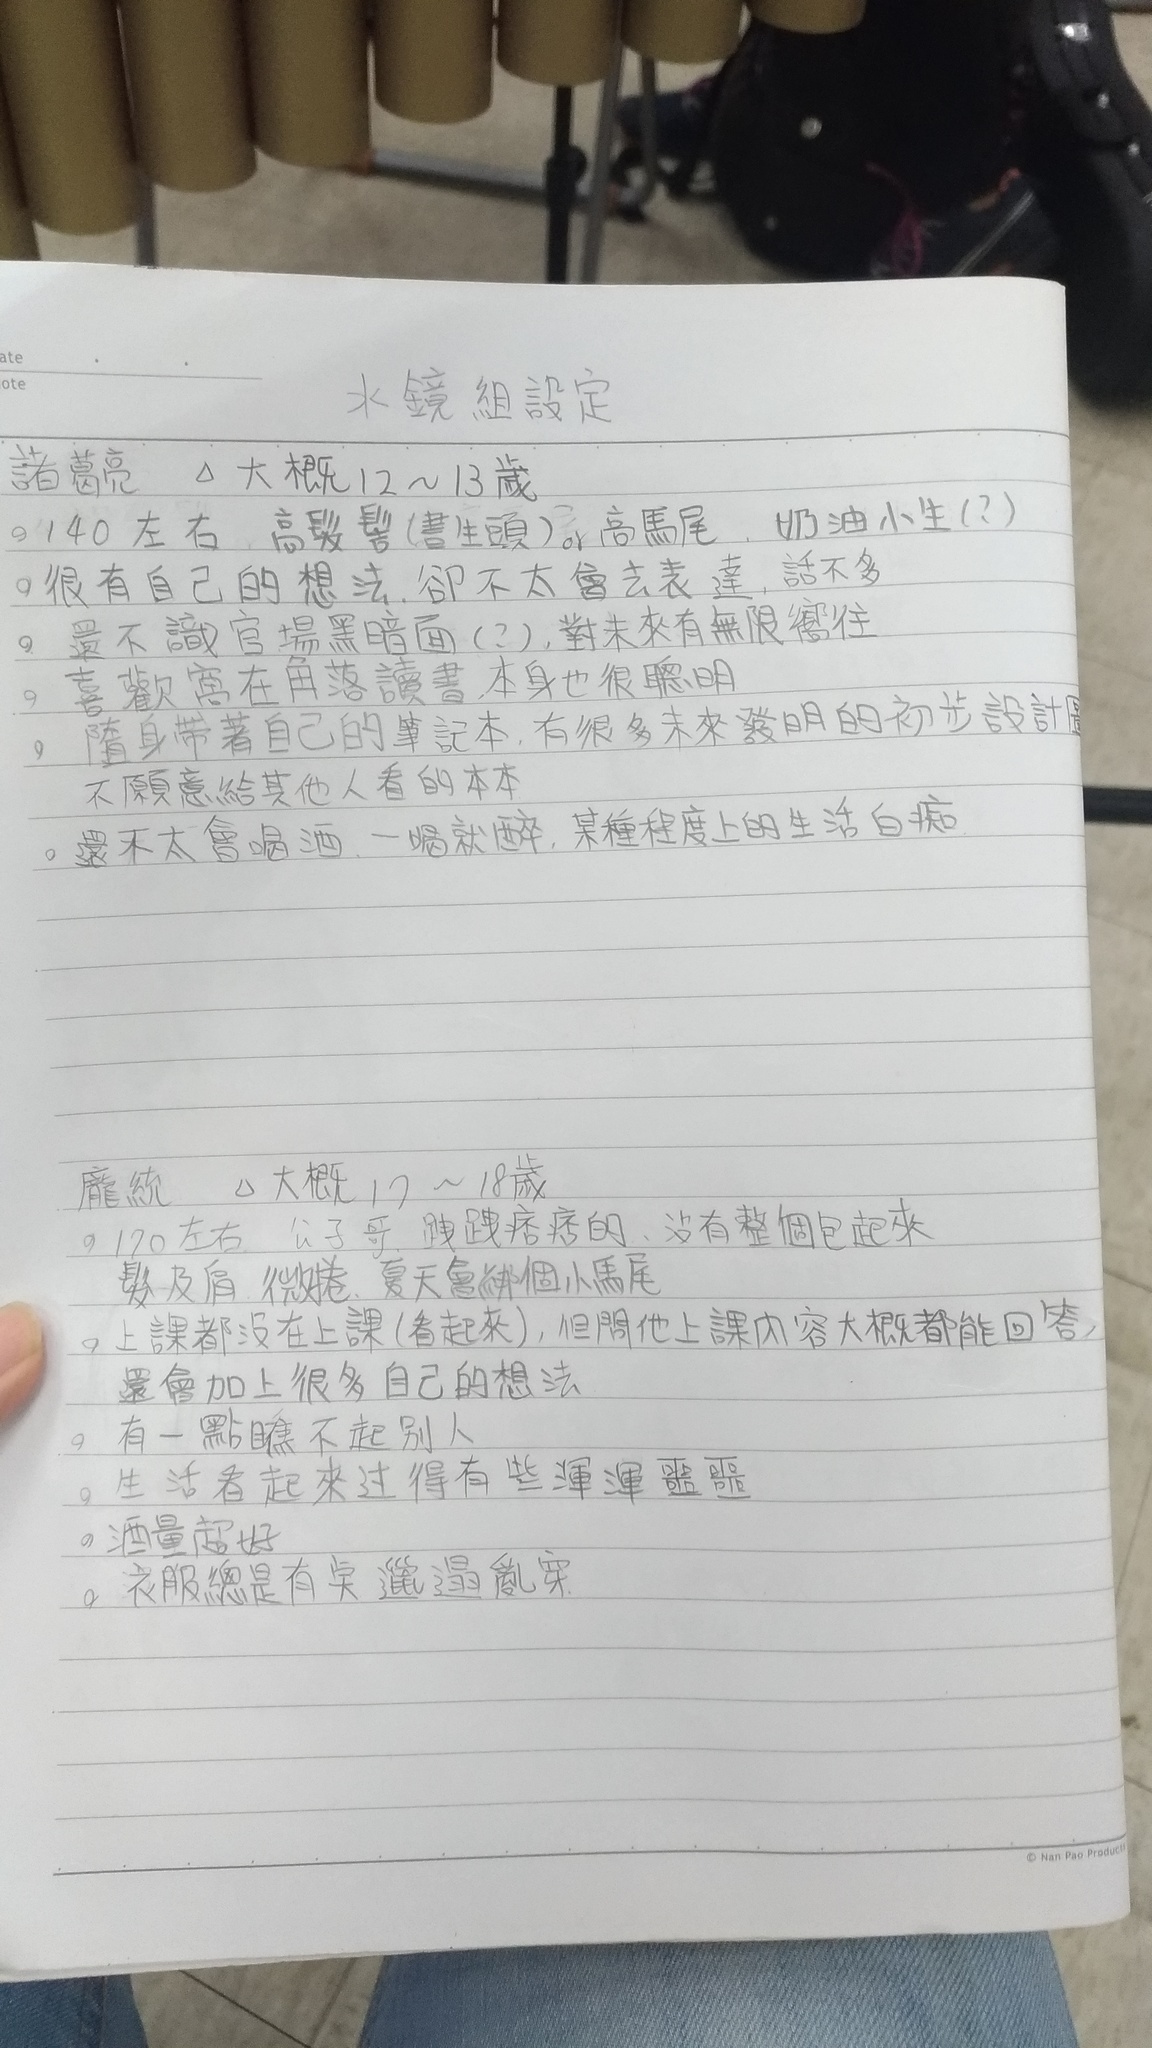 ate
ote
水鏡組設定
諸葛亮 △大概12～13歲
。140左右、高髮髻(書生頭)or高馬尾、奶油小生(?)
。很有自己的想法、卻不太會去表達、話不多
。還不識官場黑暗面(?)，對未來有無限嚮往
。喜歡窩在角落讀書、本身也很聰明
。隨身帶著自己的筆記本，有很多未來發明的初步設計圖
不願意給其他人看的本本
。還不太會喝酒、一喝就醉，某種程度上的生活白痴
龐統 △大概17～18歲
。170左右 公子哥、跩跩痞痞的、沒有整個包起來
髮及肩 微捲、夏天會綁個小馬尾
。上課都沒在上課(看起來)，但問他上課內容大概都能回答，
還會加上很多自己的想法
。有一點瞧不起別人
。生活看起來过得有些渾渾噩噩
。酒量超好
。衣服總是有點邋遢亂穿
© Nan Pao Product